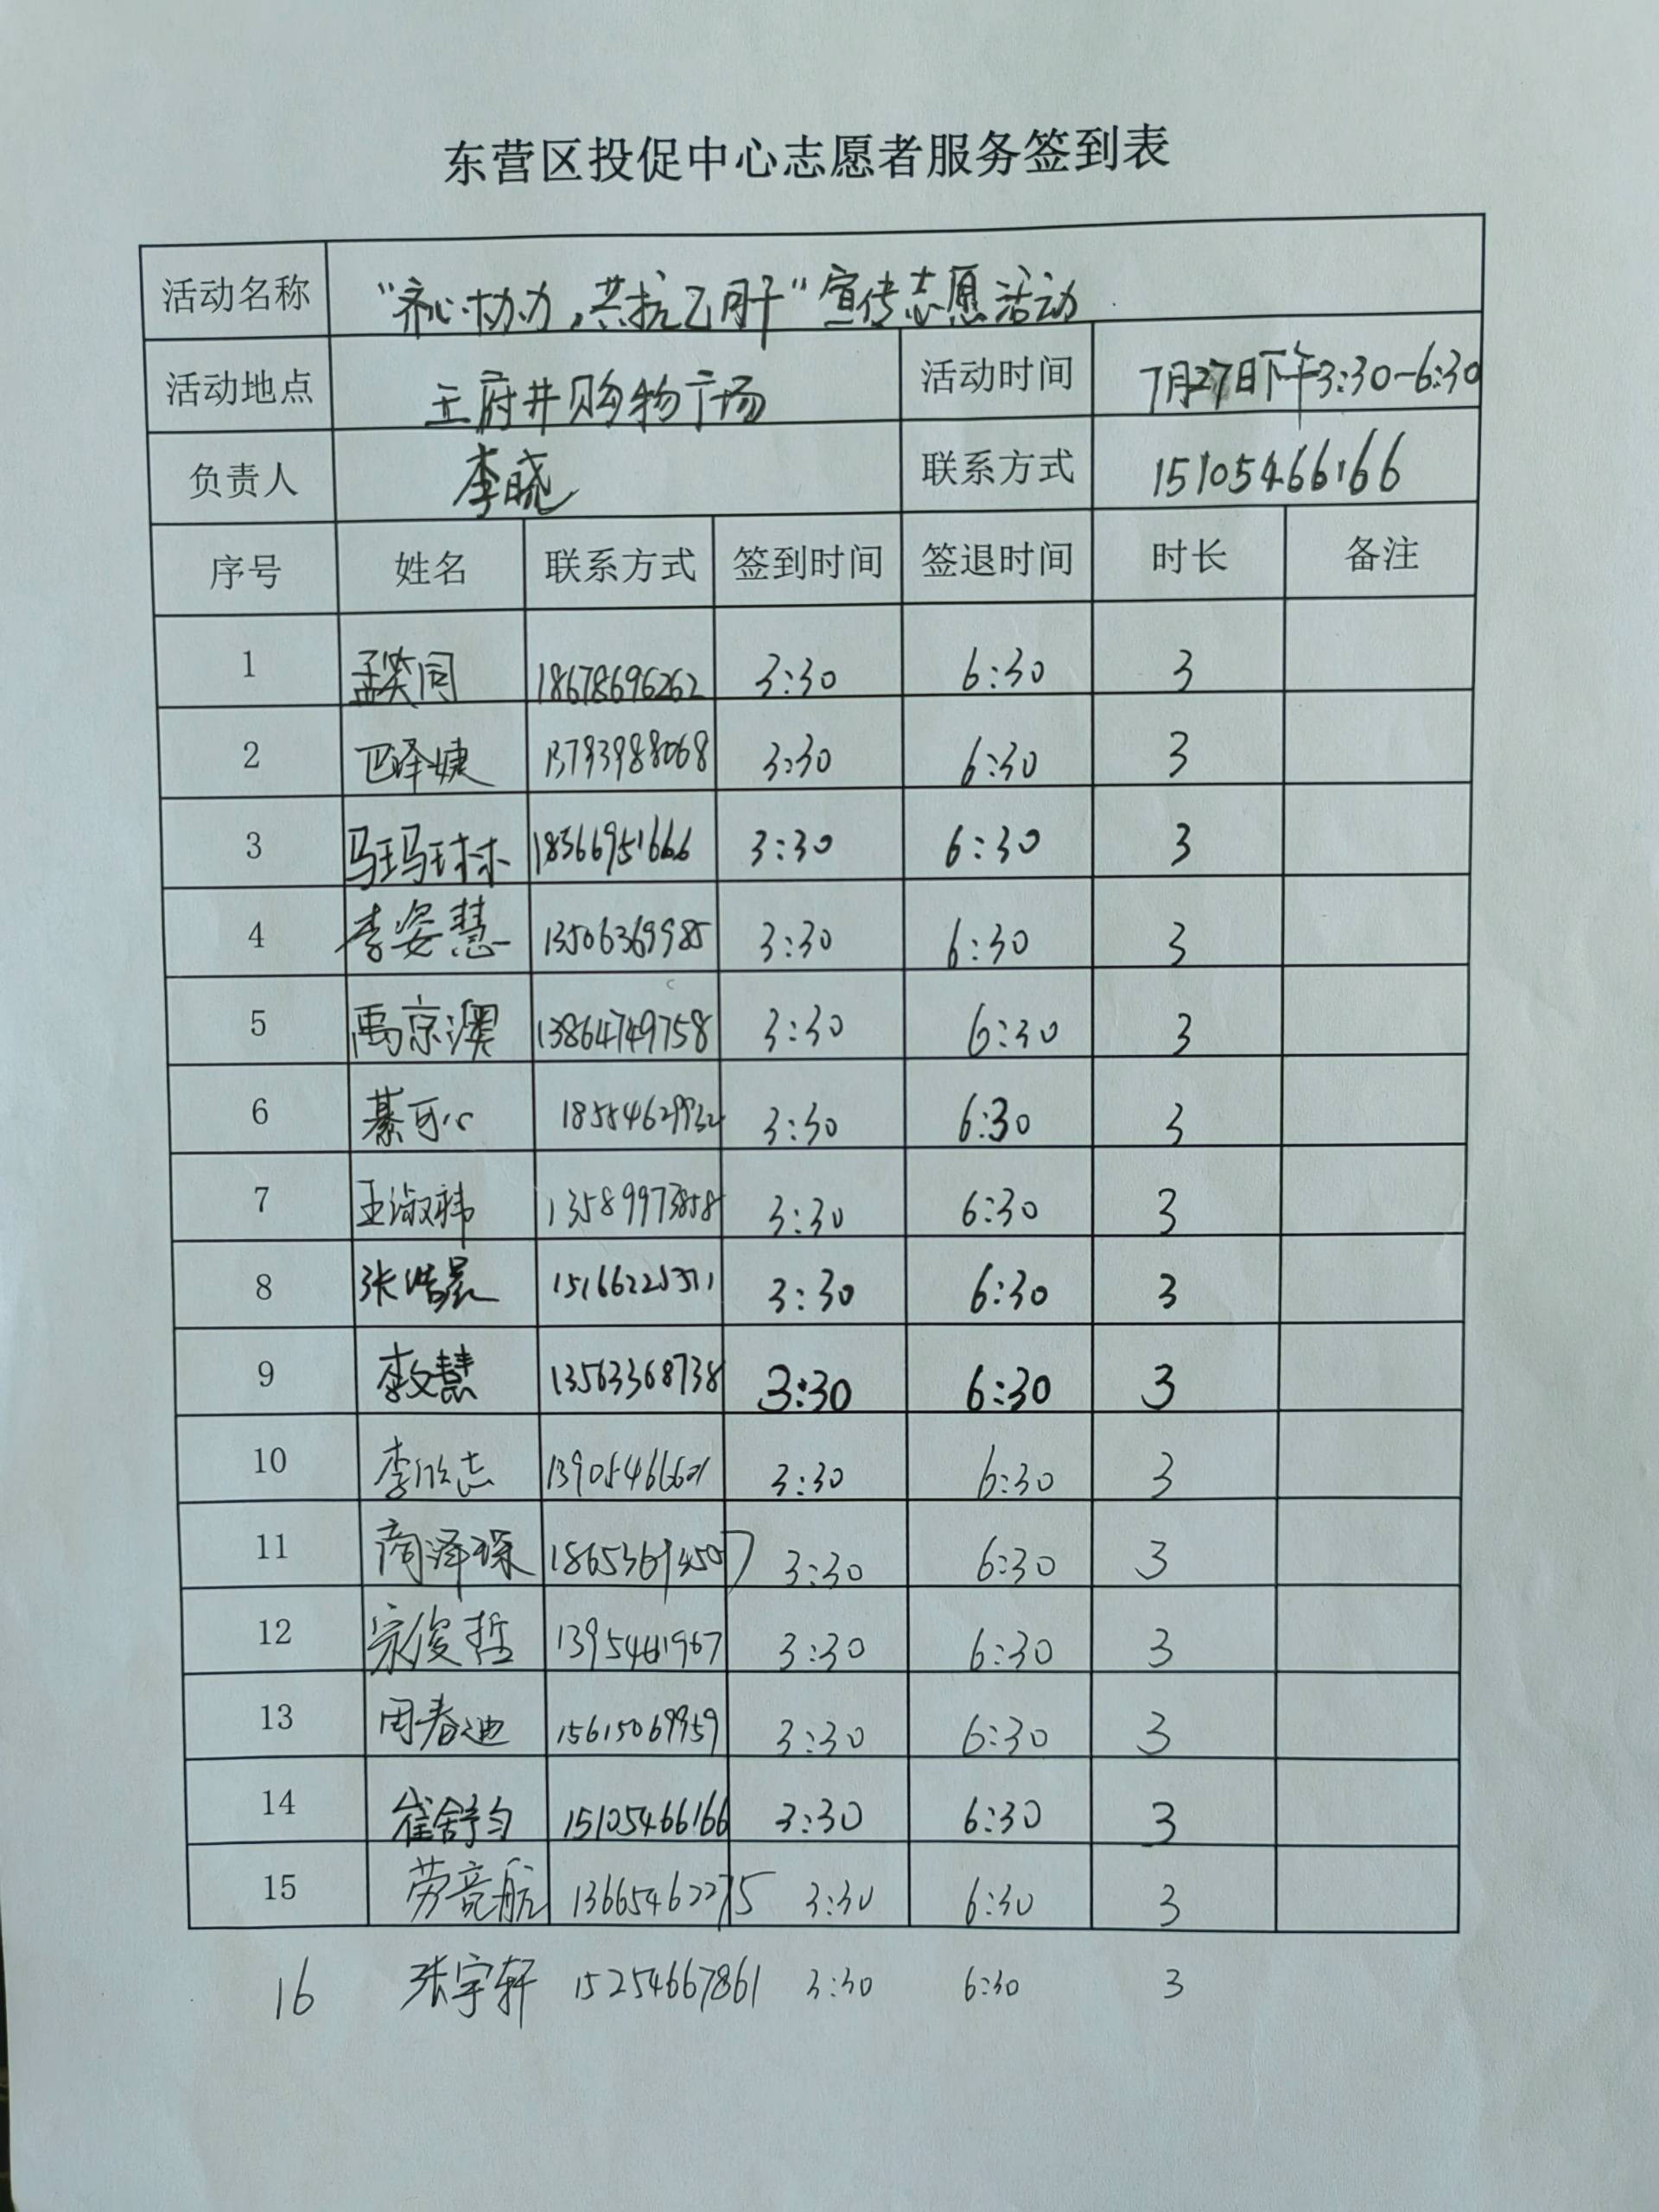 东营区投促中心志愿者服务签到表
活动名称 “齐心协力,共抗乙肝”宣传志愿活动
活动地点 王府井购物广场 活动时间 7月27日下午3:30-6:30
负责人 李晓 联系方式 15105466166
序号 姓名 联系方式 签到时间 签退时间 时长 备注
1 孟笑同 18678696262 3:30 6:30 3
2 巴泽婕 13793988068 3:30 6:30 3
3 马玛琳 18366951666 3:30 6:30 3
4 李姿慧 13506369985 3:30 6:30 3
5 禹京澳 13864749758 3:30 6:30 3
6 綦可心 18554629932 3:30 6:30 3
7 王淑祎 13589973858 3:30 6:30 3
8 张皓晨 3:30 6:30 3
9 李文慧 13563368738 3:30 6:30 3
10 李欣志 3:30 6:30 3
11 商泽琛 3:30 6:30 3
12 宗俊哲 3:30 6:30 3
13 周春迪 15615069959 3:30 6:30 3
14 崔舒匀 15105466166 3:30 6:30 3
15 劳竞航 13665462275 3:30 6:30 3
16 张宇轩 15254667861 3:30 6:30 3